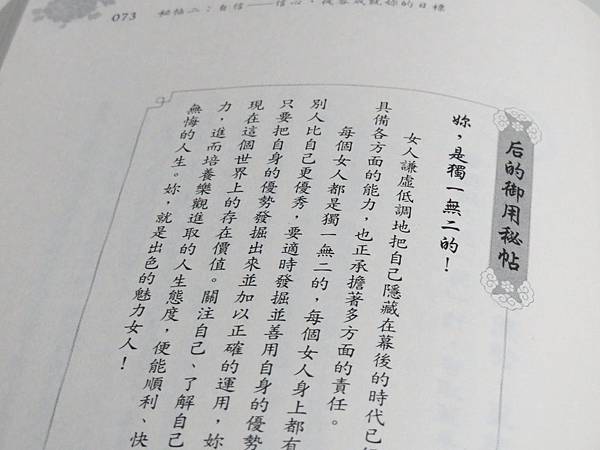 073 秘帖二：自信——信心，從容成就妳的目標
后的御用秘帖
妳，是獨一無二的！
女人謙虛低調地把自己隱藏在幕後的時代已
具備各方面的能力，也正承擔著多方面的責任。
每個女人都是獨一無二的，每個女人身上都有
別人比自己更優秀，要適時發掘並善用自身的優勢
只要把自身的優勢發掘出來並加以正確的運用，妳
現在這個世界上的存在價值。關注自己、了解自己
力，進而培養樂觀進取的人生態度，便能順利、快
無悔的人生。妳，就是出色的魅力女人！